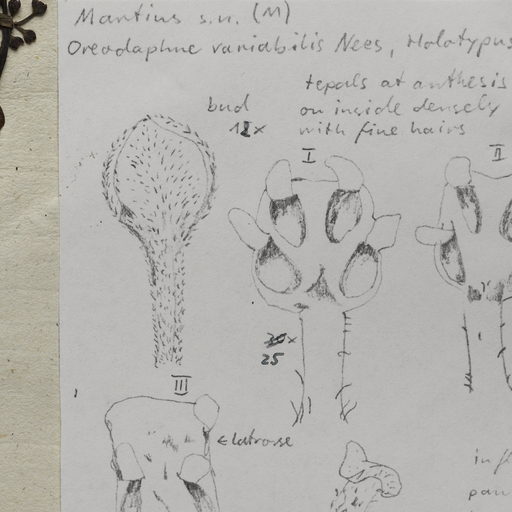 Martius s.n. (M)
Oreodaphne variabilis Nees, Holotypus
tepals at anthesis
on inside densely
with fine hairs
bud
12x
I
II
25
III
← latrorse
infl
pan